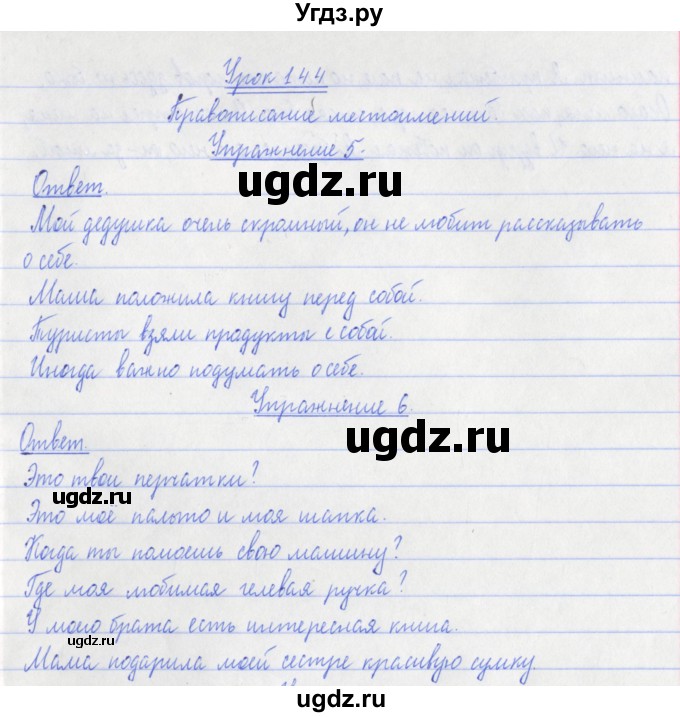 Угдз.ру
Урок 144
Правописание местоимений.
Упражнение 5.
ugdz.ru
Ответ.
Мой дедушка очень скромный, он не любит рассказывать
о себе.
Маша положила книгу перед собой.
Туристы взяли продукты с собой.
Иногда важно подумать о себе.
Упражнение 6.
ugdz.ru
Ответ.
Это твои перчатки?
ugdz.ru
Это моё пальто и моя шапка.
Когда ты помоешь свою машину?
Где моя любимая гелевая ручка?
У моего брата есть интересная книга.
ugdz.ru
Мама подарила моей сестре красивую сумку.
ugdz.ru